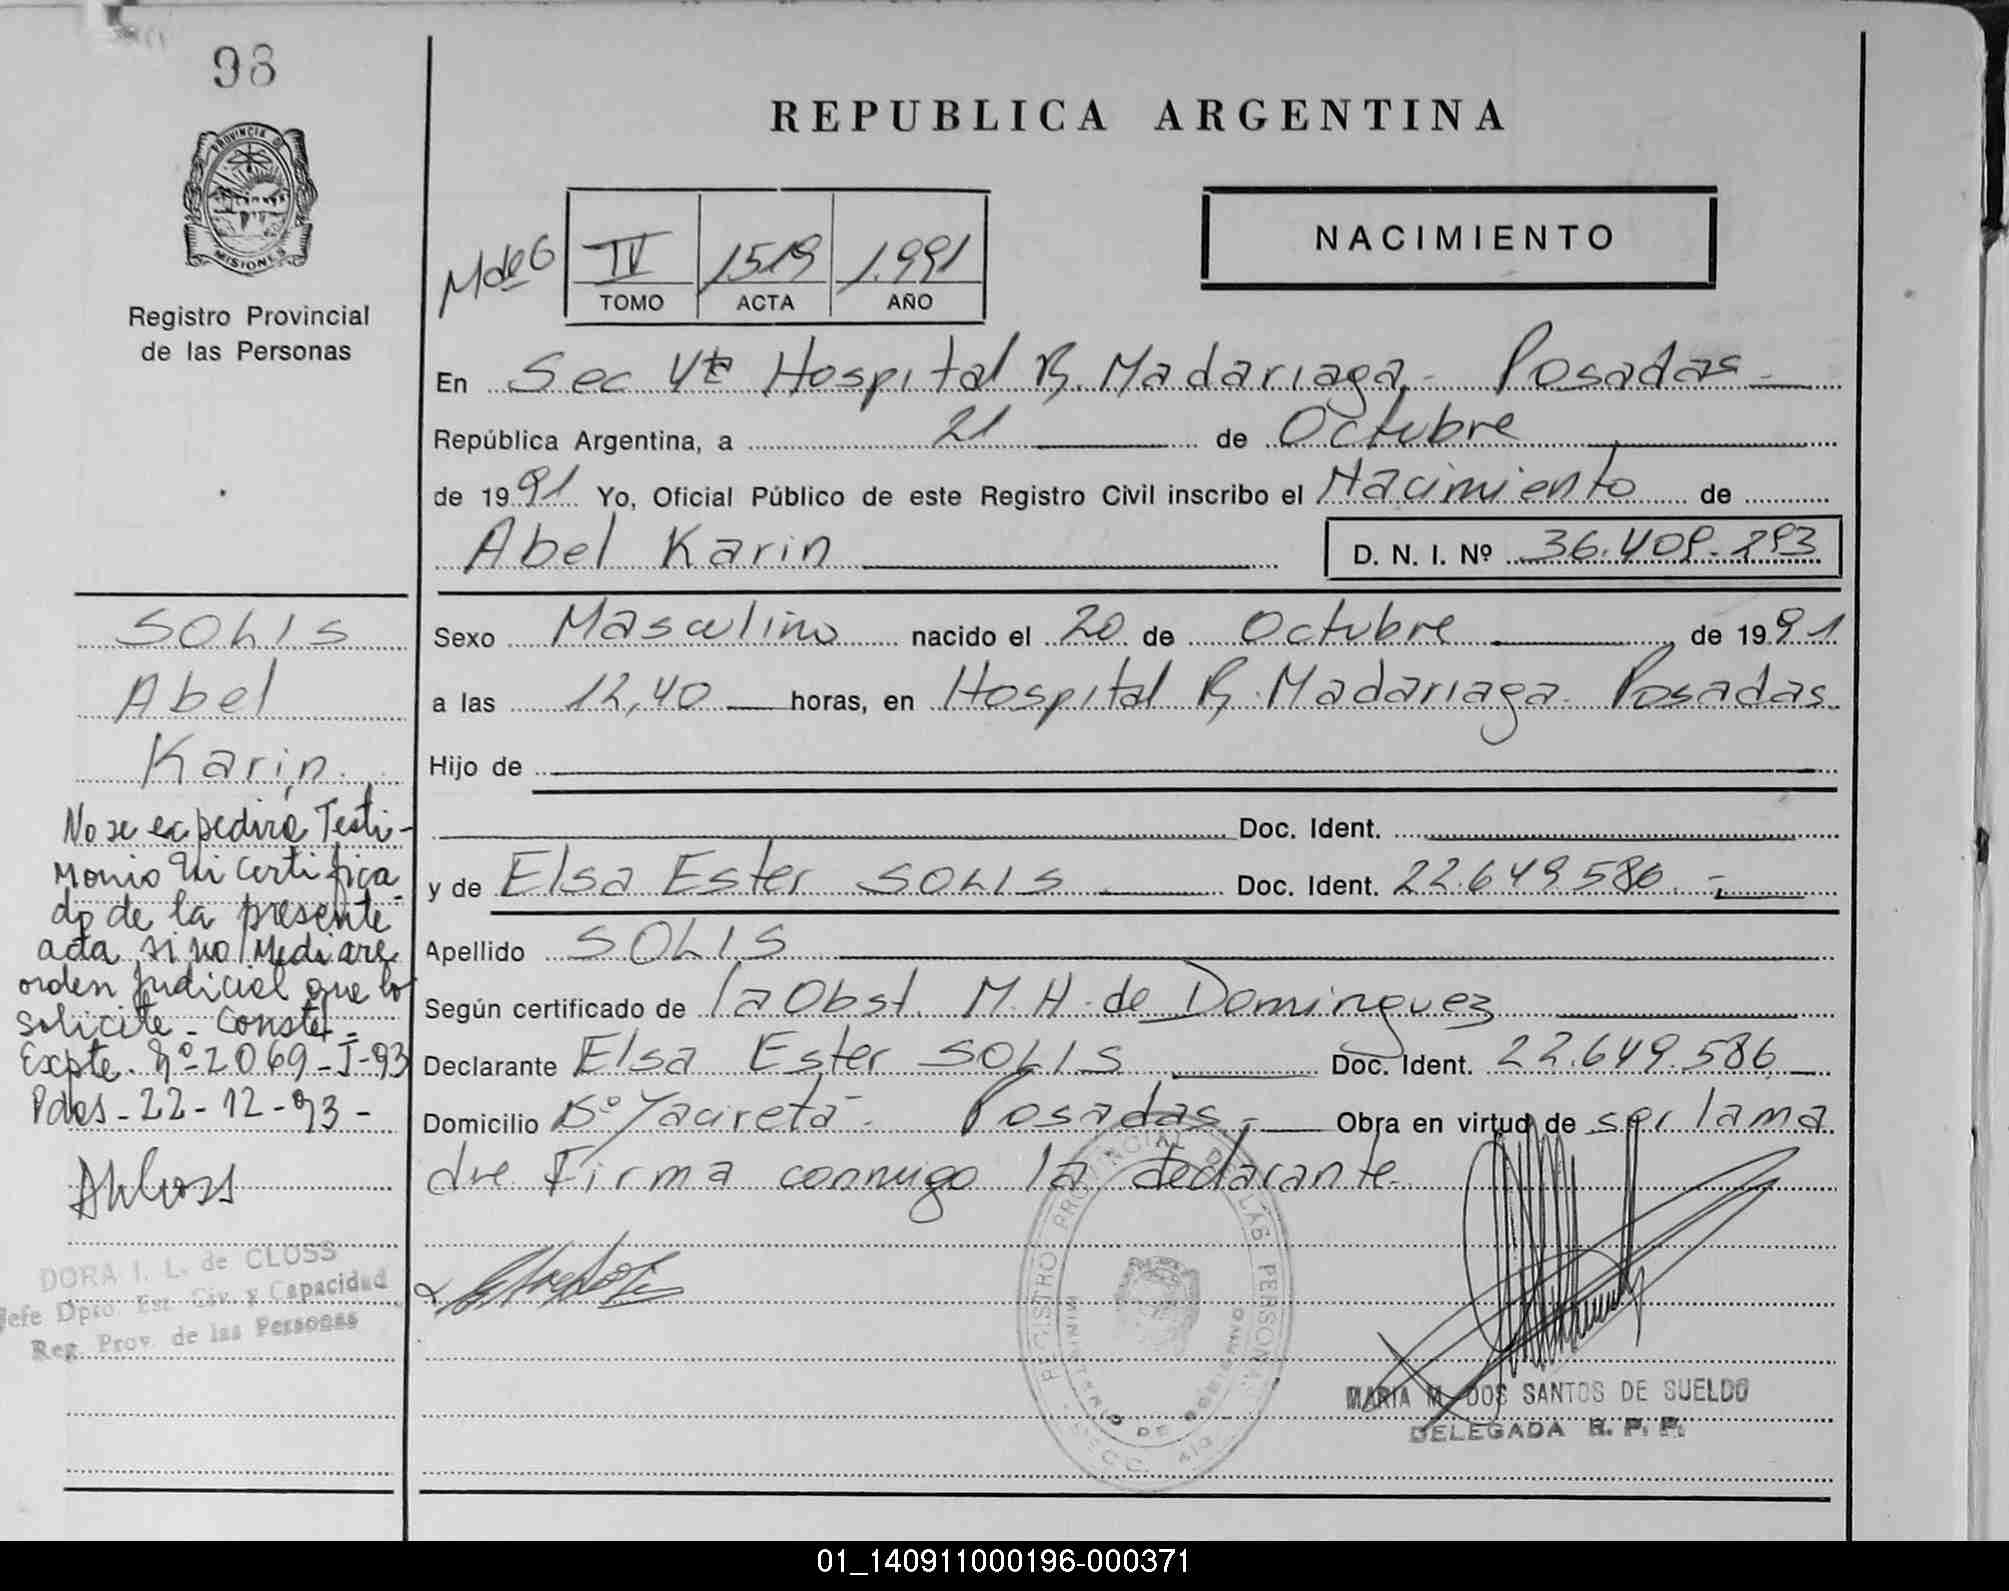 98
PROVINCIA DE
MISIONES
Registro Provincial
de las Personas
REPUBLICA ARGENTINA
NACIMIENTO
M de G
IV 1519 1.991
TOMO ACTA AÑO
En Sec 4ta Hospital R. Madariaga - Posadas -
República Argentina, a 21 de Octubre
de 1991 Yo, Oficial Público de este Registro Civil inscribo el Nacimiento de
Abel Karin D. N. I. Nº 36.409.293
Sexo Masculino nacido el 20 de Octubre de 1991
a las 12,40 horas, en Hospital R. Madariaga. Posadas.
Hijo de
Doc. Ident.
y de Elsa Ester SOLIS Doc. Ident. 22.649.586.-
Apellido SOLIS
Según certificado de la Obst. M. H. de Dominguez
Declarante Elsa Ester SOLIS Doc. Ident. 22.649.586
Domicilio Bº Yacireta - Posadas.- Obra en virtud de ser la ma
dre Firma conmigo la declarante.
REGISTRO PROVINCIAL DE LAS PERSONAS
MINISTERIO DE GOBIERNO
MARIA M. DOS SANTOS DE SUELDO
DELEGADA R. P. P.
SOLIS
Abel
Karin.
No se expedirá Testi-
monio Ni Certifica-
do de la presente
acta, si no Mediare
orden Judicial que lo
solicite - Conste -
Expte. Nº 2069-I-93
Pdas - 22-12-93 -
DORA I. L. de CLOSS
Jefe Dpto. Est. Civ. y Capacidad
Reg. Prov. de las Personas
01_140911000196-000371